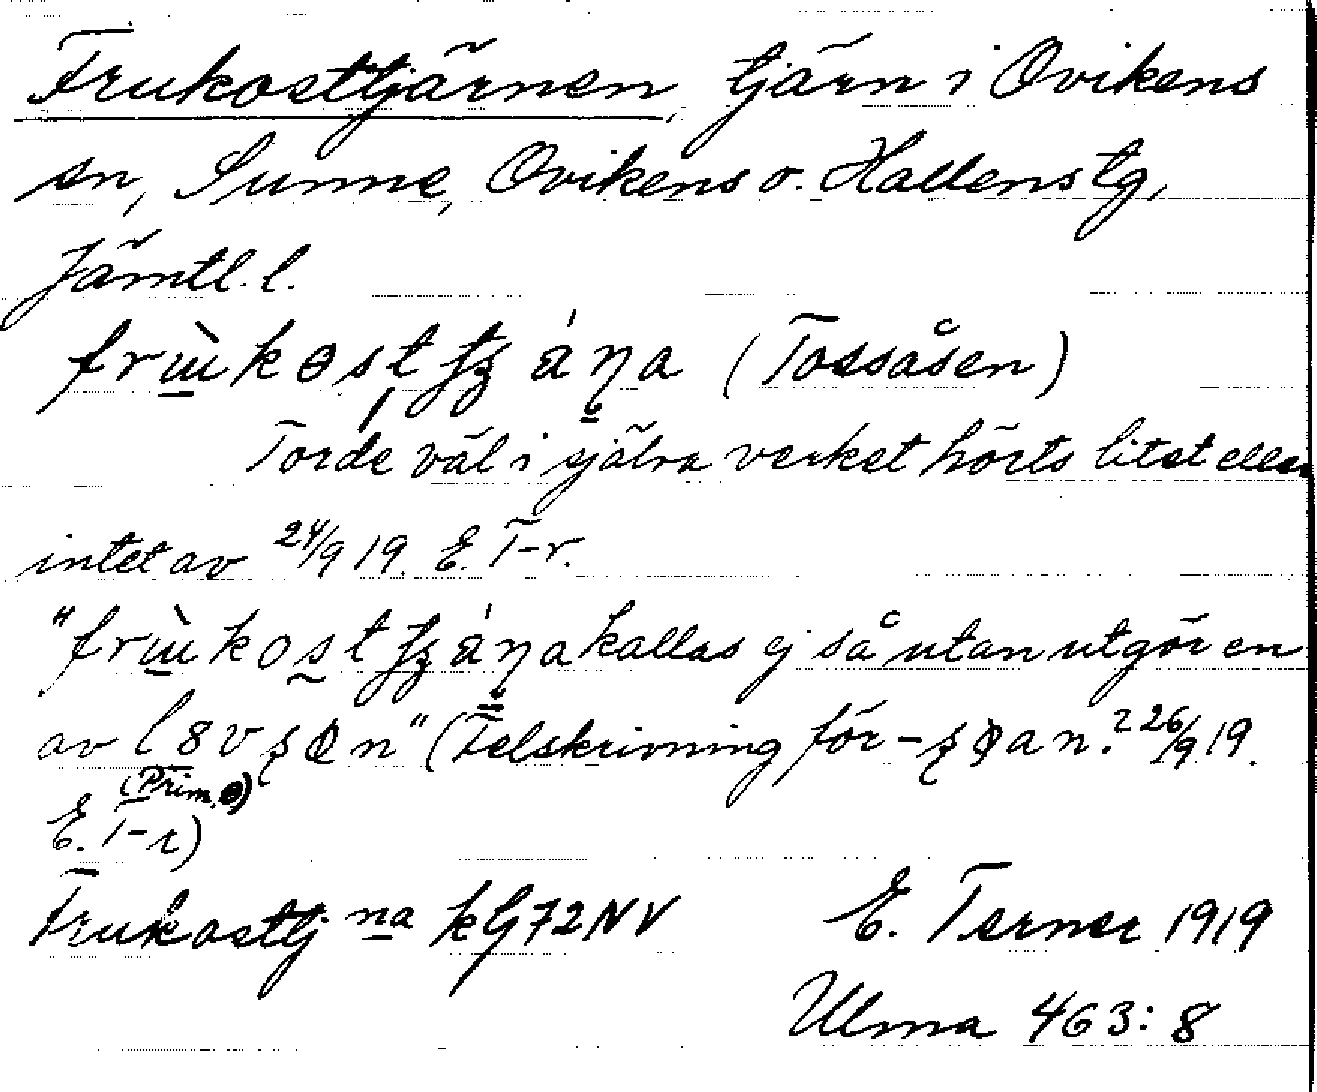 Frukosttjärnen, tjärn i Ovikens
sn, Sunne, Ovikens o. Hallens tg,
Jämtl. l.
(Tossåsen)
Torde väl i själva verket hörts litet eller
intet av 24/9 19. E. T-r.
kallas ej så utan utgör en
av (Felskrivning för ? 26/9 19.
(Prim. ɵ)
E. T-r)
Frukosttj. na kbl 72 NV E. Terner 1919
Ulma 463: 8